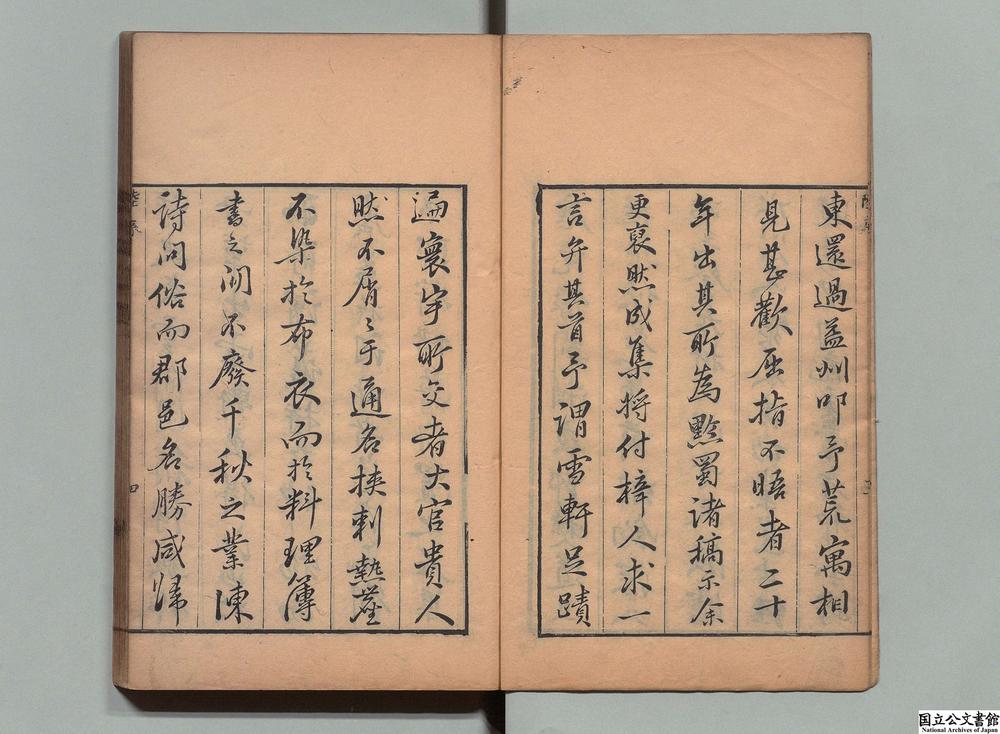 東還過益州叩予荒寓相
見甚歡屈指不晤者二十
年出其所為黔蜀諸稿示余
更裒然成集將付梓人求一
言弁其首予謂雪軒足蹟
遍寰宇所交者大官貴人
然不屑〻于通名挾刺熱塵
不染於布衣而於料理簿
書之间不廢千秋之業陳
詩问俗而郡邑名勝咸歸
四
国立公文書館
National Archives of Japan